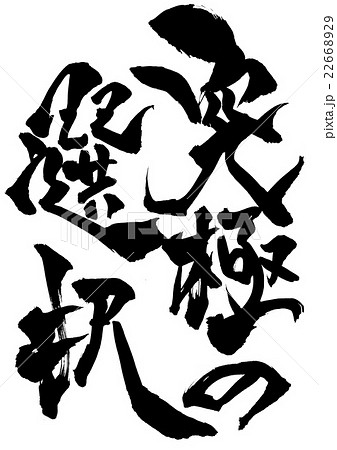 究極の
選択
PIXTA
pixta.jp - 22668929